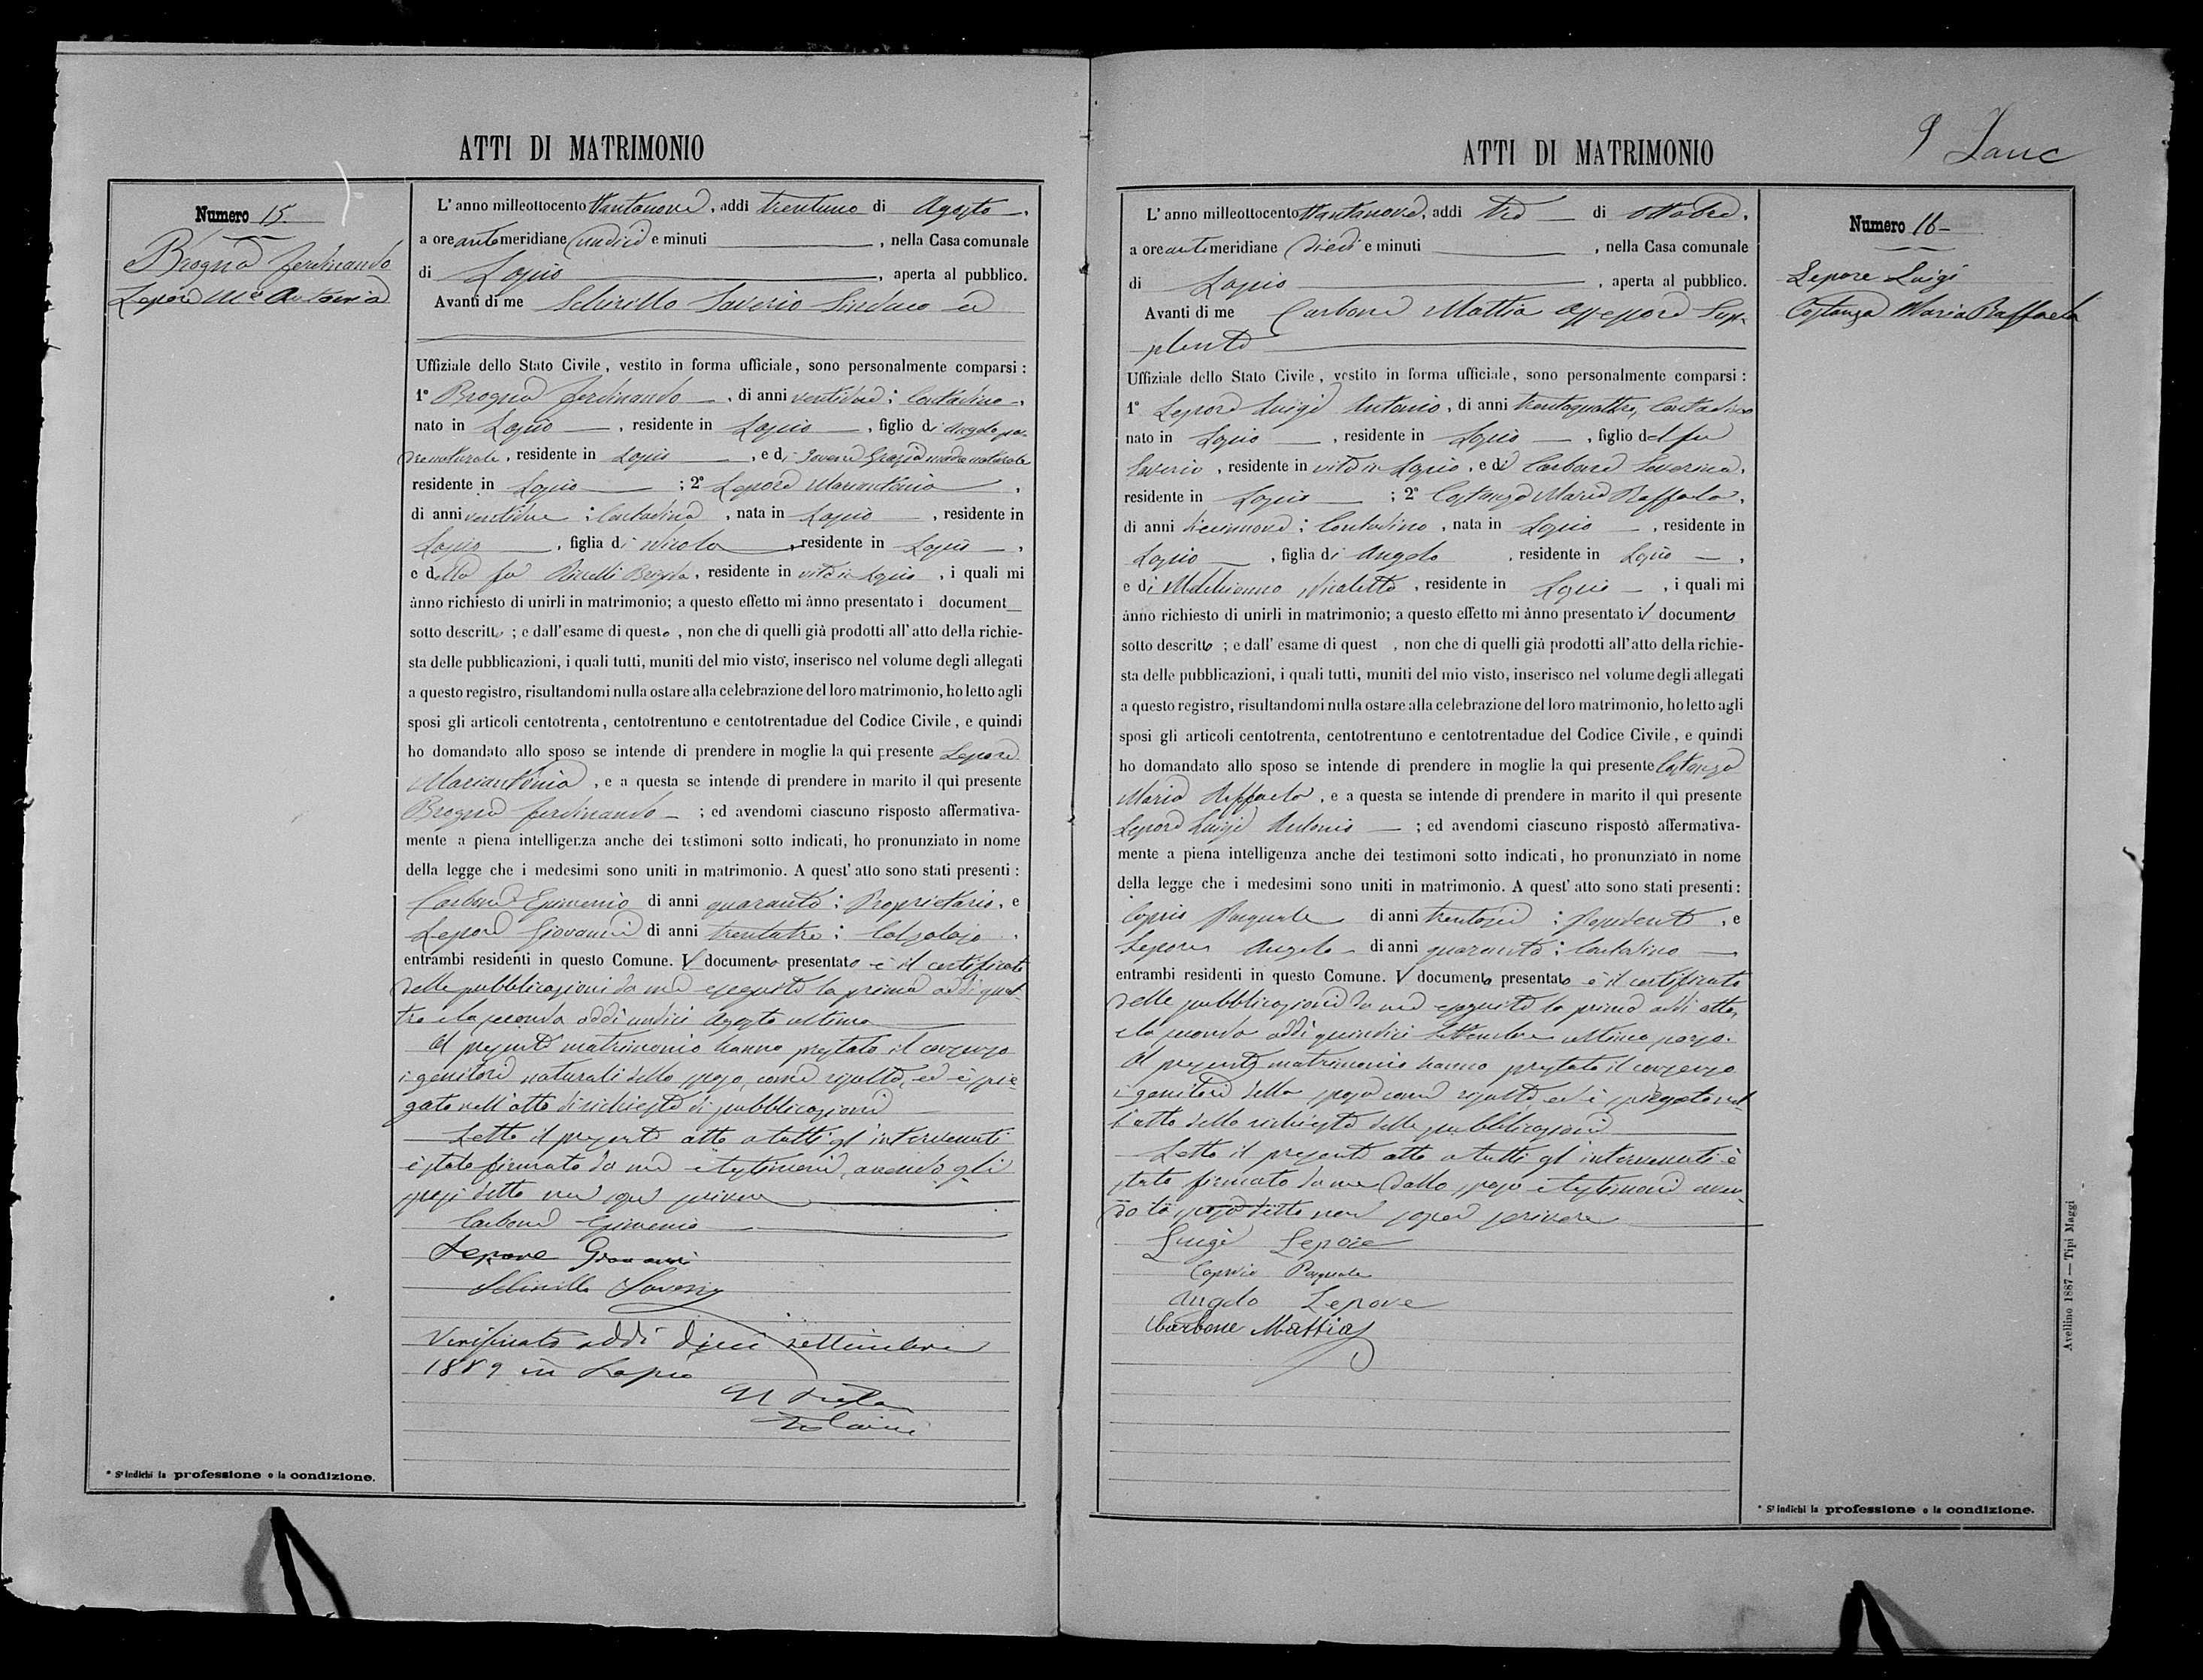 ATTI DI MATRIMONIO
Numero 15.
Brogna Ferdinando
Lepore Mª Antonia
L' anno milleottocento ttantanove, addi trentuno di Agosto,
a ore antemeridiane undici e minuti , nella Casa comunale
di Lapio , aperta al pubblico.
Avanti di me Schirillo Saverio Sindaco ed
Uffiziale dello Stato Civile, vestito in forma ufficiale, sono personalmente comparsi :
1º Brogna Ferdinando , di anni ventidue ; Contadino ,
nato in Lapio , residente in Lapio , figlio di Angelo pa-
dre naturale , residente in Lapio , e di Iovene Grazia madre naturale
residente in Lapio ; 2º Lepore Mariantonia ,
di anni ventidue ; Contadina , nata in Lapio , residente in
Lapio , figlia di Nicola , residente in Lapio ,
e della fu Brigida , residente in vita in Lapio , i quali mi
ànno richiesto di unirli in matrimonio; a questo effetto mi ànno presentato i document
sotto descritto ; e dall'esame di questo , non che di quelli già prodotti all' atto della richie-
sta delle pubblicazioni, i quali tutti, muniti del mio visto, inserisco nel volume degli allegati
a questo registro, risultandomi nulla ostare alla celebrazione del loro matrimonio, ho letto agli
sposi gli articoli centotrenta, centotrentuno e centotrentadue del Codice Civile, e quindi
ho domandato allo sposo se intende di prendere in moglie la qui presente Lepore
Mariantonia , e a questa se intende di prendere in marito il qui presente
Brogna Ferdinando ; ed avendomi ciascuno risposto affermativa-
mente a piena intelligenza anche dei testimoni sotto indicati, ho pronunziato in nome
della legge che i medesimi sono uniti in matrimonio. A quest' atto sono stati presenti :
Carbone Epimenio di anni quaranta ; Proprietario , e
Lepore Giovanni di anni trentatre ; Calzolajo ,
entrambi residenti in questo Comune. Il documento presentato è il certificato
delle pubblicazioni da me eseguite la prima addì quat-
tro e la seconda addì undici Agosto ultimo
Al presente matrimonio hanno prestato il consenso
i genitori naturali dello sposo, come risulta, ed è spie-
gato nell' atto di richiesta di pubblicazioni
Letto il presente atto a tutti gl' intervenuti
è stato firmato da me e testimoni, avendo gli
sposi detto non saper scrivere
Carbone Epimenio
Lepore Giovanni
Schirillo Saverio
Verificato addì dieci settembre
1889 in Lapio
* Si indichi la professione o la condizione.
ATTI DI MATRIMONIO
9
Numero 16
Lepore Luigi
Costanza Maria Raffaela
L' anno milleottocento ttantanove, addi tre di Ottobre,
a ore antemeridiane dieci e minuti , nella Casa comunale
di Lapio , aperta al pubblico.
Avanti di me Carbone Mattia Assessore Sup-
plente
Uffiziale dello Stato Civile, vestito in forma ufficiale, sono personalmente comparsi :
1º Lepore Luigi Antonio, di anni trentaquattro, Contadino
nato in Lapio , residente in Lapio , figlio del fu
Saverio , residente in vita in Lapio , e di Carbone Saverina,
residente in Lapio ; 2º Costanza Maria Raffaela,
di anni diecinnove ; Contadina , nata in Lapio , residente in
Lapio , figlia di Angelo , residente in Lapio ,
e di Nicoletta , residente in Lapio , i quali mi
ànno richiesto di unirli in matrimonio; a questo effetto mi ànno presentato il documento
sotto descritto ; e dall' esame di quest , non che di quelli già prodotti all' atto della richie-
sta delle pubblicazioni, i quali tutti, muniti del mio visto, inserisco nel volume degli allegati
a questo registro, risultandomi nulla ostare alla celebrazione del loro matrimonio, ho letto agli
sposi gli articoli centotrenta, centotrentuno e centotrentadue del Codice Civile, e quindi
ho domandato allo sposo se intende di prendere in moglie la qui presente Costanza
Maria Raffaela , e a questa se intende di prendere in marito il qui presente
Lepore Luigi Antonio ; ed avendomi ciascuno risposto affermativa-
mente a piena intelligenza anche dei testimoni sotto indicati, ho pronunziato in nome
della legge che i medesimi sono uniti in matrimonio. A quest' atto sono stati presenti :
Caprio Pasquale di anni trentasei ; Possidente , e
Lepore Angelo di anni quaranta ; Contadino ,
entrambi residenti in questo Comune. Il documento presentato è il certificato
delle pubblicazioni da me eseguite la prima addì otto,
e la seconda addì quindici Settembre ultimo scorso.
Al presente matrimonio hanno prestato il consenso
i genitori della sposa come risulta ed è spiegato nel-
l'atto della richiesta delle pubblicazioni
Letto il presente atto a tutti gl' intervenuti è
stato firmato da me dallo sposo e testimoni aven-
do la sposa detto non saper scrivere
Luigi Lepore
Caprio Pasquale
Angelo Lepore
Carbone Mattia
Avellino 1887 — Tipi Maggi
* Si indichi la professione o la condizione.